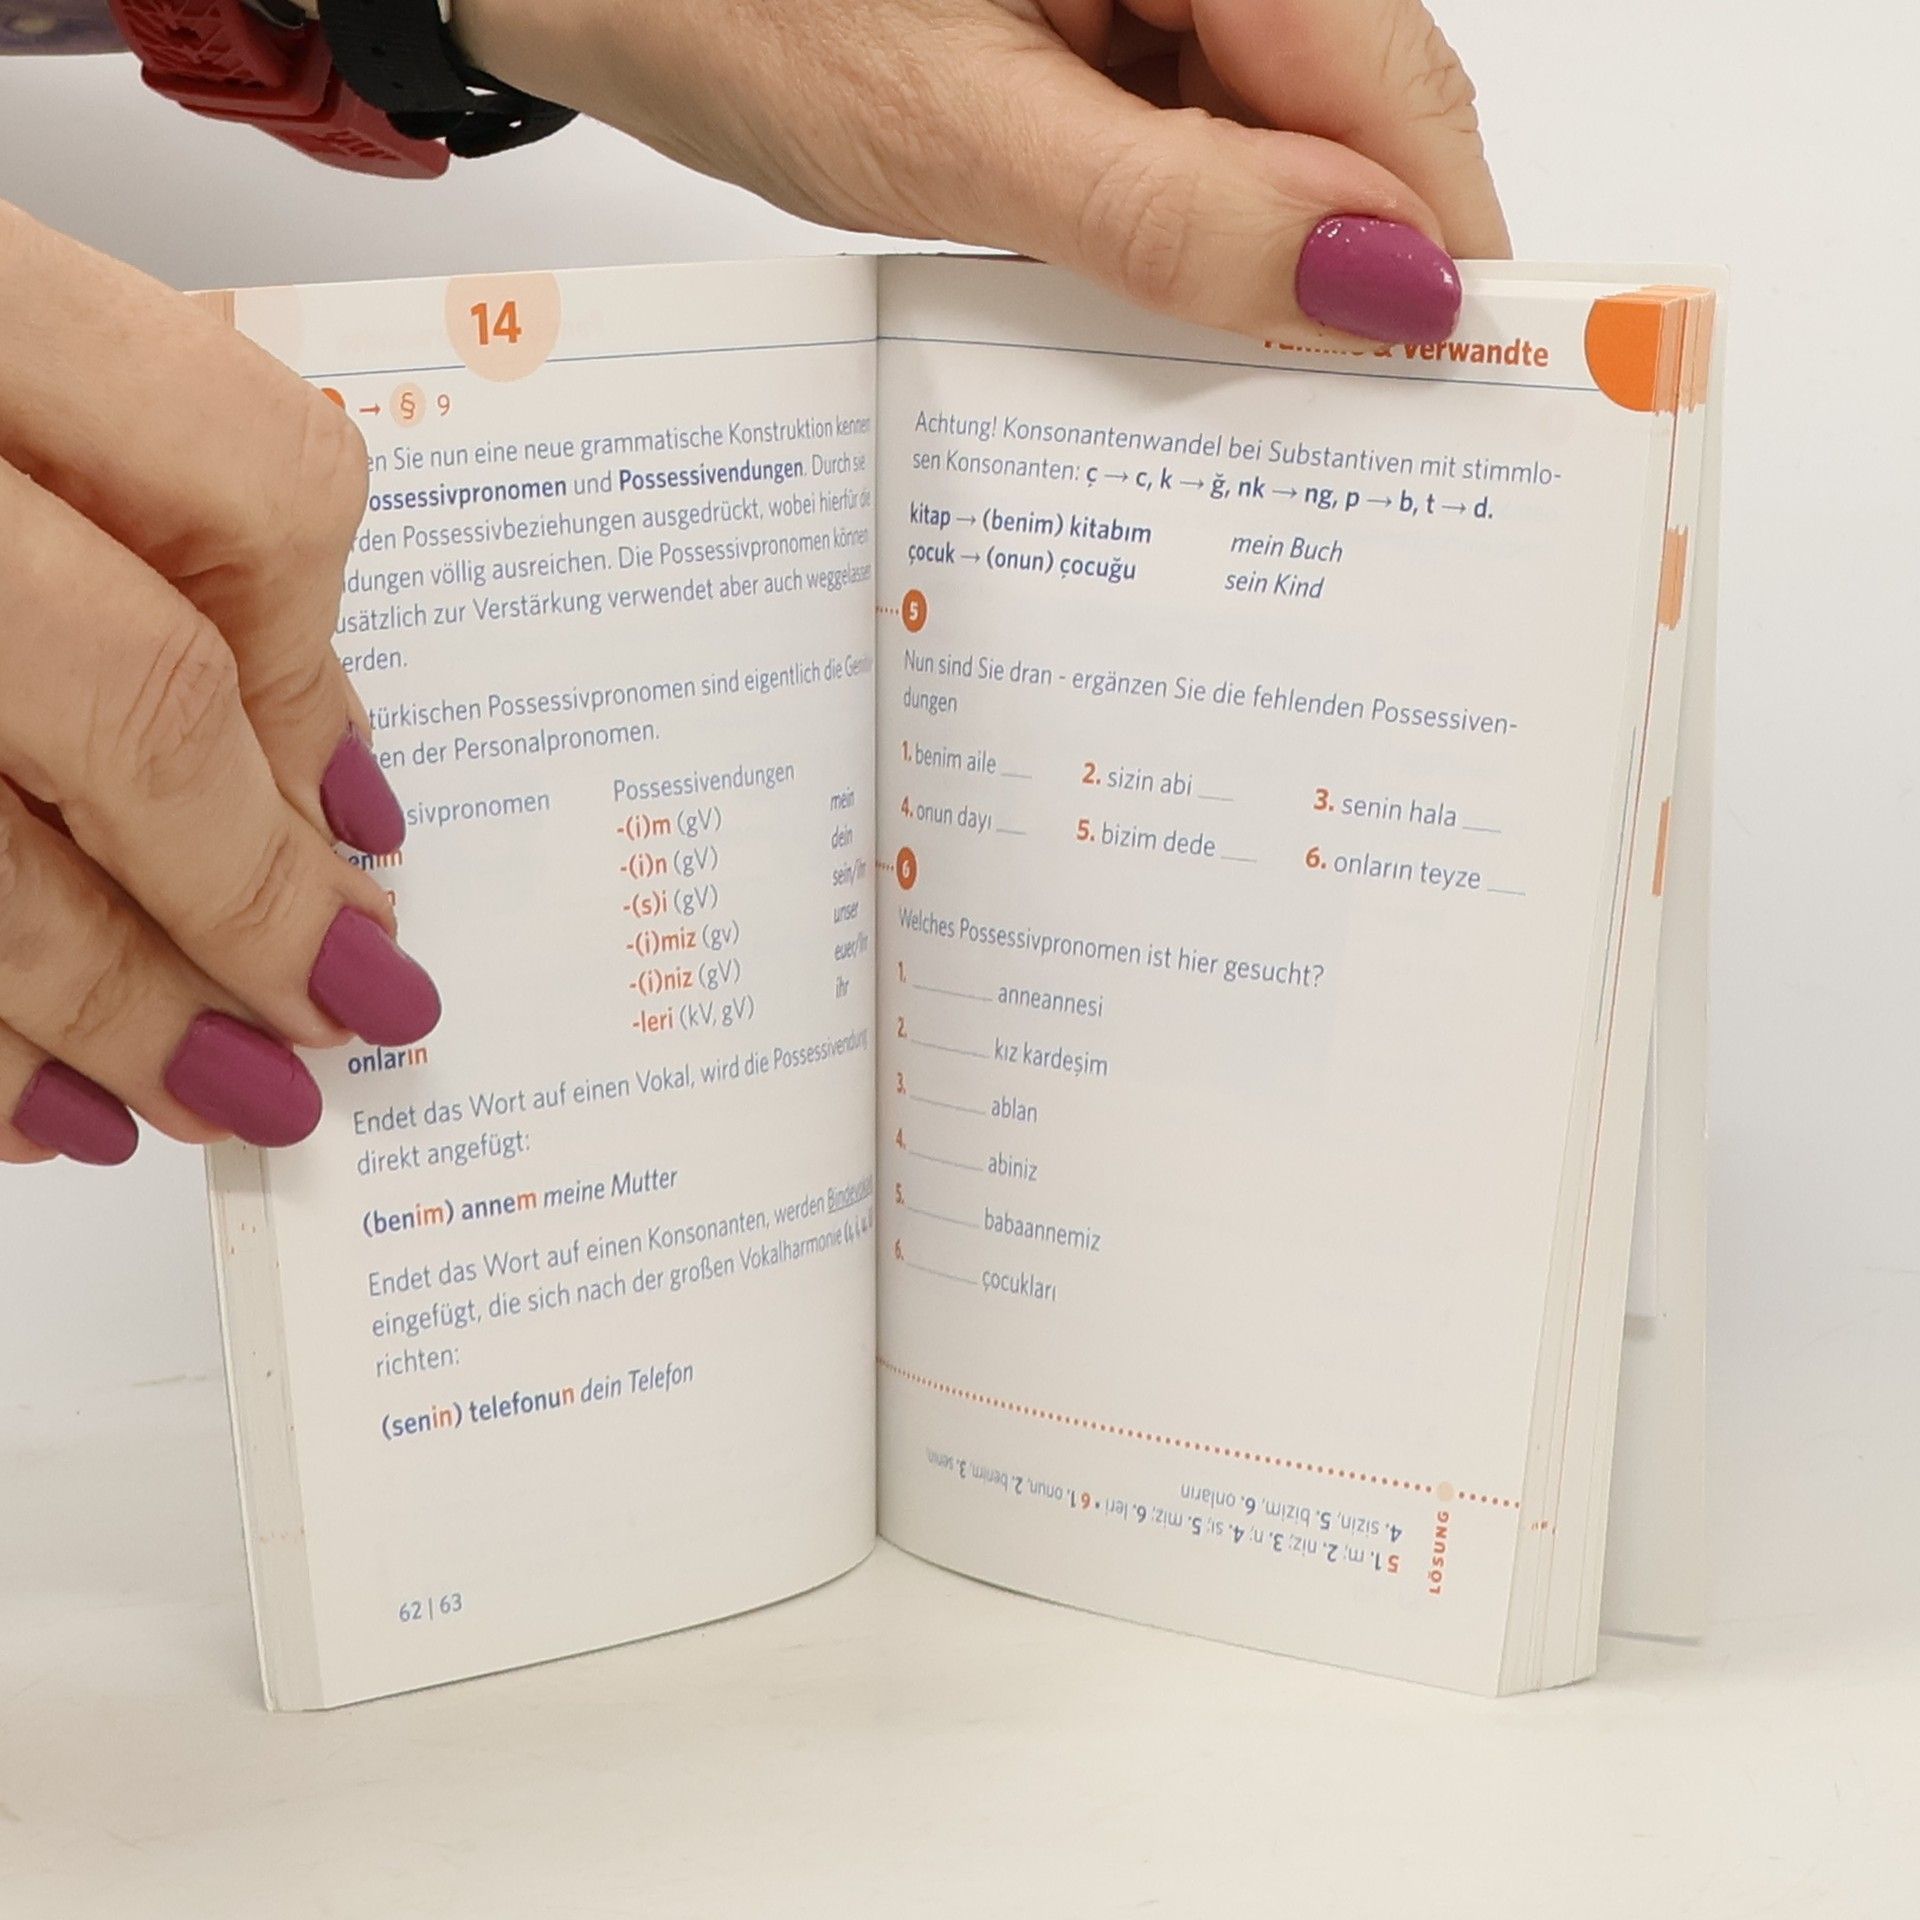 14
→ § 9
Sie nun eine neue grammatische Konstruktion kennen
und Possessivendungen. Durch sie
Possessivbeziehungen ausgedrückt, wobei hierfür die
völlig ausreichen. Die Possessivpronomen können
zur Verstärkung verwendet aber auch weggelassen
türkischen Possessivpronomen sind eigentlich die
der Personalpronomen.
Possessivendungen
-(i)m (gV) mein
-(i)n (gV) dein
-(s)i (gV) sein/ihr
-(i)miz (gv) unser
-(i)niz (gV) euer/Ihr
-leri (kV, gV) ihr
onların
Endet das Wort auf einen Vokal, wird die Possessivendung
direkt angefügt:
(benim) annem meine Mutter
Endet das Wort auf einen Konsonanten, werden Bindevokale
eingefügt, die sich nach der großen Vokalharmonie
richten:
(senin) telefonun dein Telefon
62 | 63
& Verwandte
Achtung! Konsonantenwandel bei Substantiven mit stimmlo-
sen Konsonanten: ç → c, k → ğ, nk → ng, p → b, t → d.
kitap → (benim) kitabım mein Buch
çocuk → (onun) çocuğu sein Kind
5
Nun sind Sie dran - ergänzen Sie die fehlenden Possessiven-
dungen
1. benim aile ___ 2. sizin abi ___ 3. senin hala ___
4. onun dayı ___ 5. bizim dede ___ 6. onların teyze ___
6
Welches Possessivpronomen ist hier gesucht?
1. ______ anneannesi
2. ______ kız kardeşim
3. ______ ablan
4. ______ abiniz
5. ______ babaannemiz
6. ______ çocukları
LÖSUNG
5 1. m; 2. niz; 3. n; 4. si; 5. miz; 6. leri • 6 1. onun, 2. benim, 3. senin,
4. sizin, 5. bizim, 6. onların